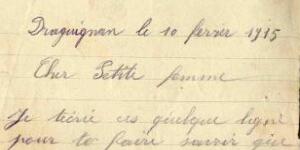 Draguignan le 10 fevrer 1915
Cher Petite femme
Je técrie ces quelque ligne
pour te faire savoir que